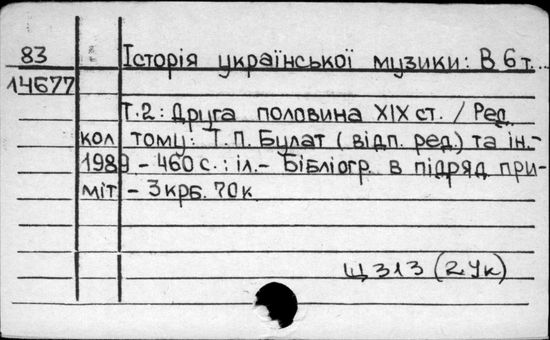 83 Історія української музики: В 6 т...
14677
Т.2: Друга половина XIX ст. / Ред.
кол тому: Т.П. Булат (відп. ред.) та ін.-
1989 - 460 с.: іл.- Бібліогр. в підряд при-
міт - 3 крб. 70 к.
Щ313 (2Ук)